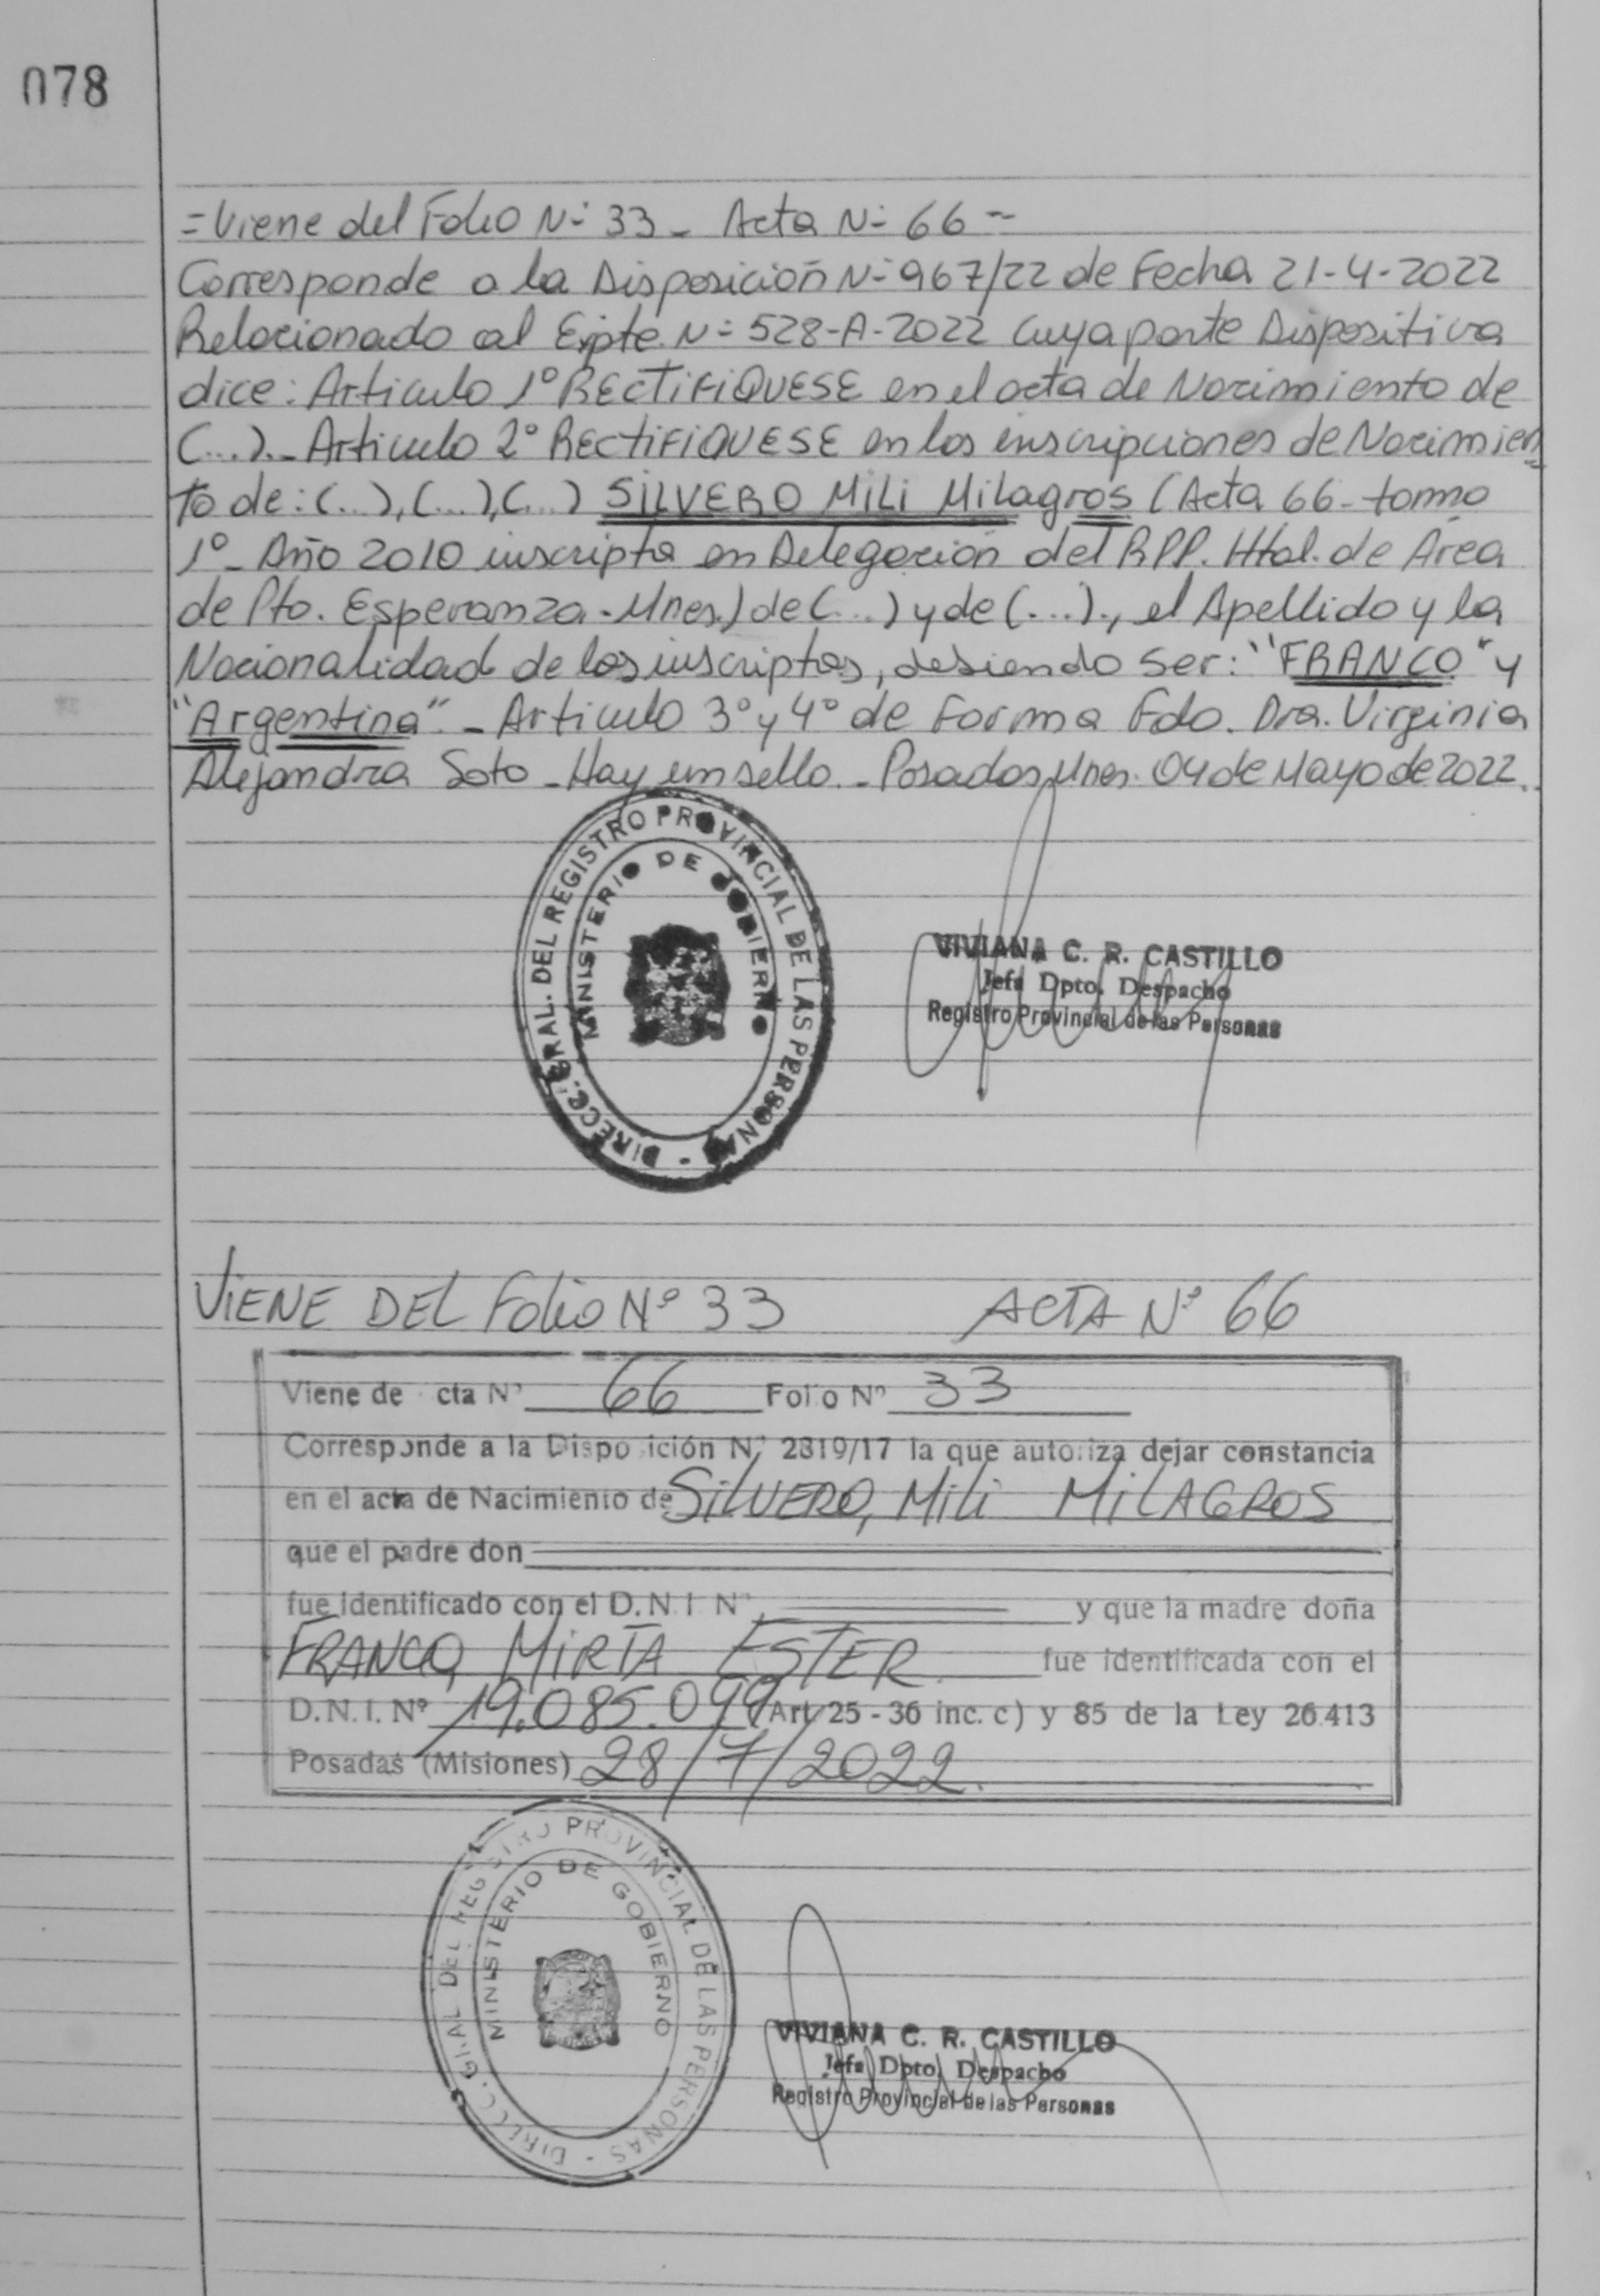 078
= Viene del Folio Nº 33 _ Acta Nº 66 =
Corresponde a la Disposición Nº 967/22 de Fecha 21-4-2022
Relacionado al Expte. Nº 528-A-2022 cuya parte Dispositiva
dice: Articulo 1º RECTIFIQUESE en el acta de Nacimiento de
(...)._ Articulo 2º RECTIFIQUESE en las inscripciones de Nacimien
to de: (...), (...), (...) SILVERO Mili Milagros (Acta 66 - tomo
1º _ Año 2010 inscripta en Delegación del RPP. Htal. de Área
de Pto. Esperanza - Mnes.) de (...) y de (...)., el Apellido y la
Nacionalidad de los inscriptos, debiendo ser: "FRANCO" y
"Argentina" _ Articulo 3º y 4º de Forma Fdo. Dra. Virginia
Alejandra Soto _ Hay un sello. _ Posadas Mnes. 04 de Mayo de 2022.
DIRECC. GRAL. DEL REGISTRO PROVINCIAL DE LAS PERSONAS -
MINISTERIO DE GOBIERNO
VIVIANA C. R. CASTILLO
Jefa Dpto. Despacho
Registro Provincial de las Personas
VIENE DEL Folio Nº 33 ACTA Nº 66
Viene de cta Nº 66 Folio Nº 33
Corresponde a la Disposición Nº 2819/17 la que autoriza dejar constancia
en el acta de Nacimiento de SILVERO, Mili MILAGROS
que el padre don
fue identificado con el D.N.I Nº y que la madre doña
FRANCO, MIRTA ESTER fue identificada con el
D.N.I. Nº 19.085.099 (Art 25 - 36 inc. c) y 85 de la Ley 26.413
Posadas (Misiones) 28/7/2022.
DIRECC. GRAL DEL REGISTRO PROVINCIAL DE LAS PERSONAS -
MINISTERIO DE GOBIERNO
VIVIANA C. R. CASTILLO
Jefa Dpto. Despacho
Registro Provincial de las Personas